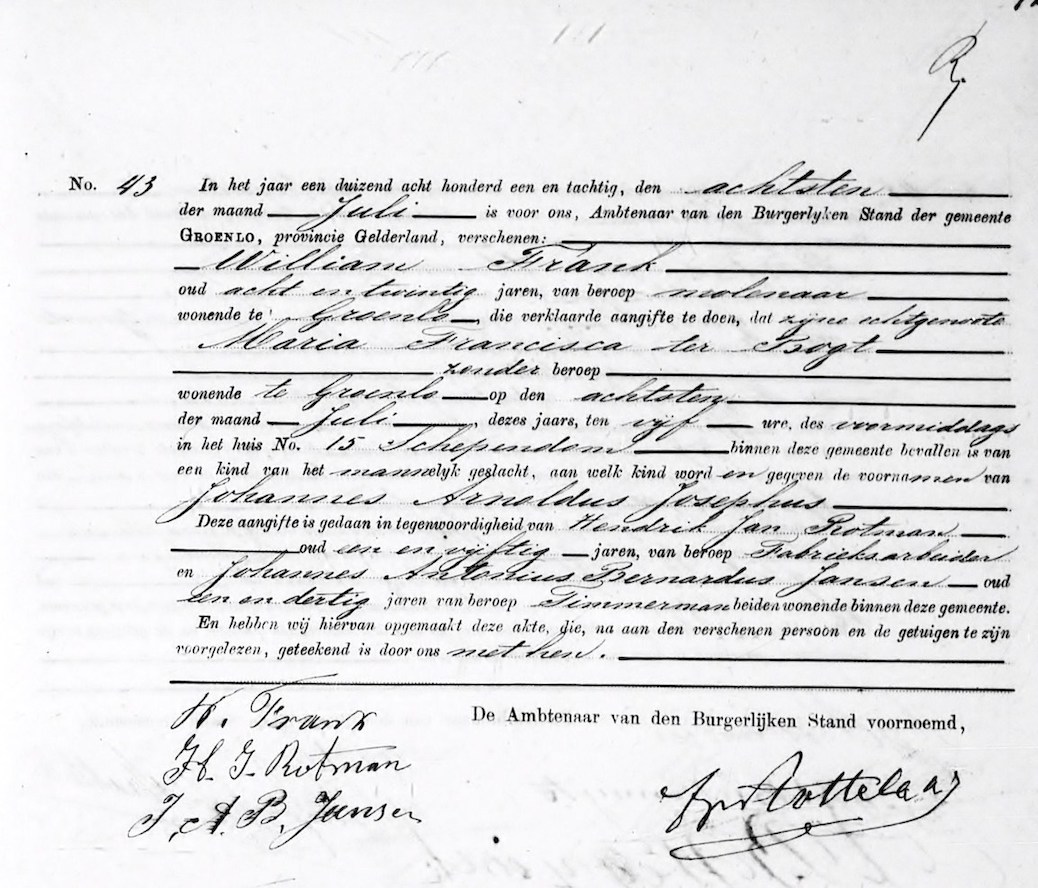 No. 43 In het jaar een duizend acht honderd een en tachtig, den achtsten
der maand Juli is voor ons, Ambtenaar van den Burgerlyken Stand der gemeente
GROENLO, provincie Gelderland, verschenen:
William Frank
oud acht en twintig jaren, van beroep molenaar
wonende te Groenlo, die verklaarde aangifte te doen, dat zijne echtgenoote
Maria Francisca ter Bogt
zonder beroep
wonende te Groenlo op den achtsten
der maand Juli dezes jaars, ten vijf ure, des voormiddags
in het huis No. 15 Schependom binnen deze gemeente bevallen is van
een kind van het mannelyk geslacht, aan welk kind word en gegeven de voornamen van
Johannes Arnoldus Josephus
Deze aangifte is gedaan in tegenwoordigheid van Hendrik Jan Rotman
oud een en vijftig jaren, van beroep Fabrieksarbeider
en Johannes Antonius Bernardus Jansen oud
een en dertig jaren van beroep Timmerman beiden wonende binnen deze gemeente.
En hebben wij hiervan opgemaakt deze akte, die, na aan den verschenen persoon en de getuigen te zijn
voorgelezen, geteekend is door ons met hen.
W. Frank
De Ambtenaar van den Burgerlijken Stand voornoemd,
H. J. Rotman
J. A. B. Jansen